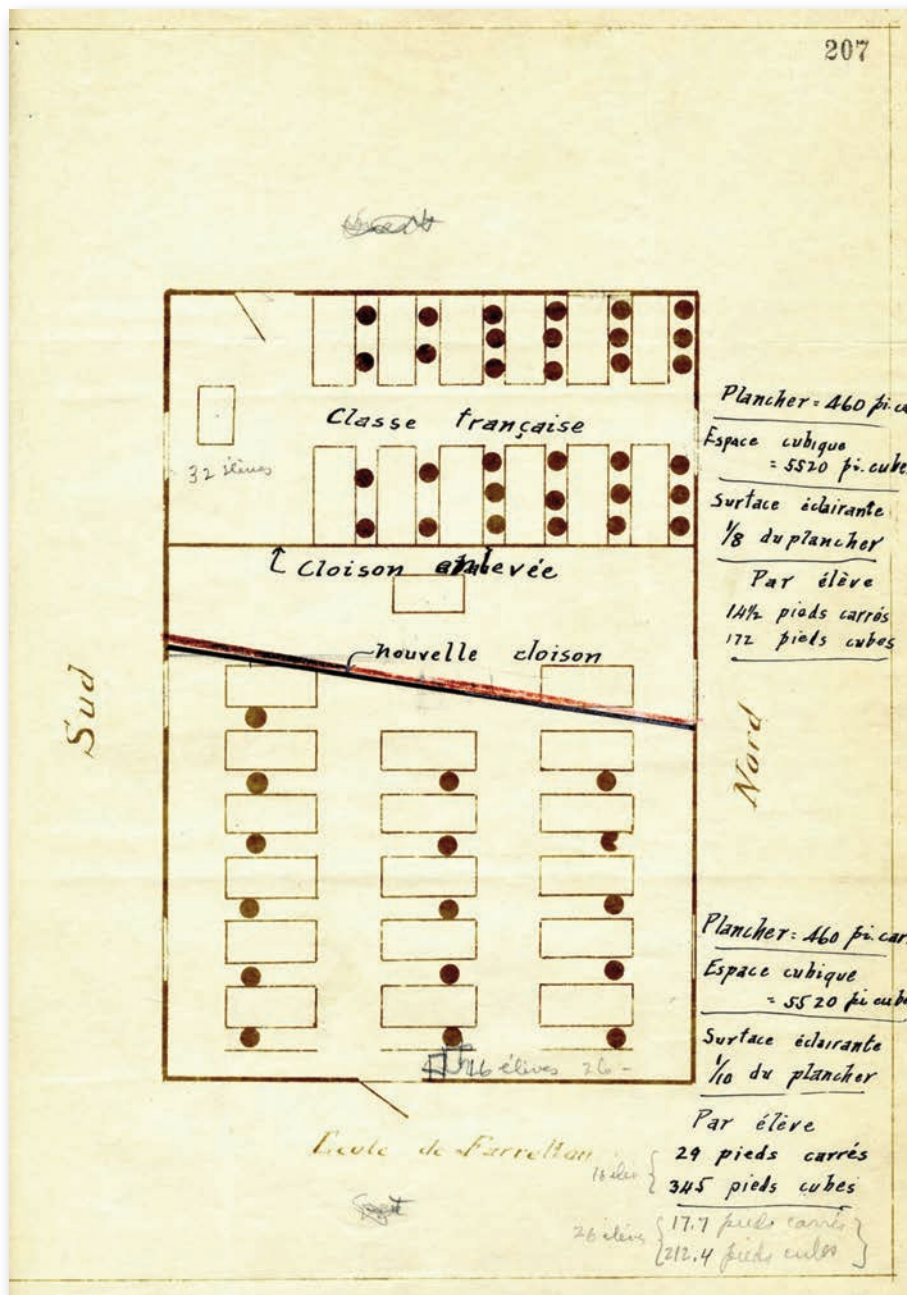 207
Classe française
32 élèves
Cloison enlevée
nouvelle cloison
Sud
Nord
Plancher = 460 pi. ca
Espace cubique
= 5520 pi. cube
Surface éclairante
1/8 du plancher
Par élève
14½ pieds carrés
172 pieds cubes
Plancher = 460 pi. car
Espace cubique
= 5520 pi cub
Surface éclairante
1/10 du plancher
Par élève
29 pieds carrés
345 pieds cubes
16 élèves 26 -
École de Farrelton
26 élèves
17.7 pieds carrés
212.4 pieds cubes